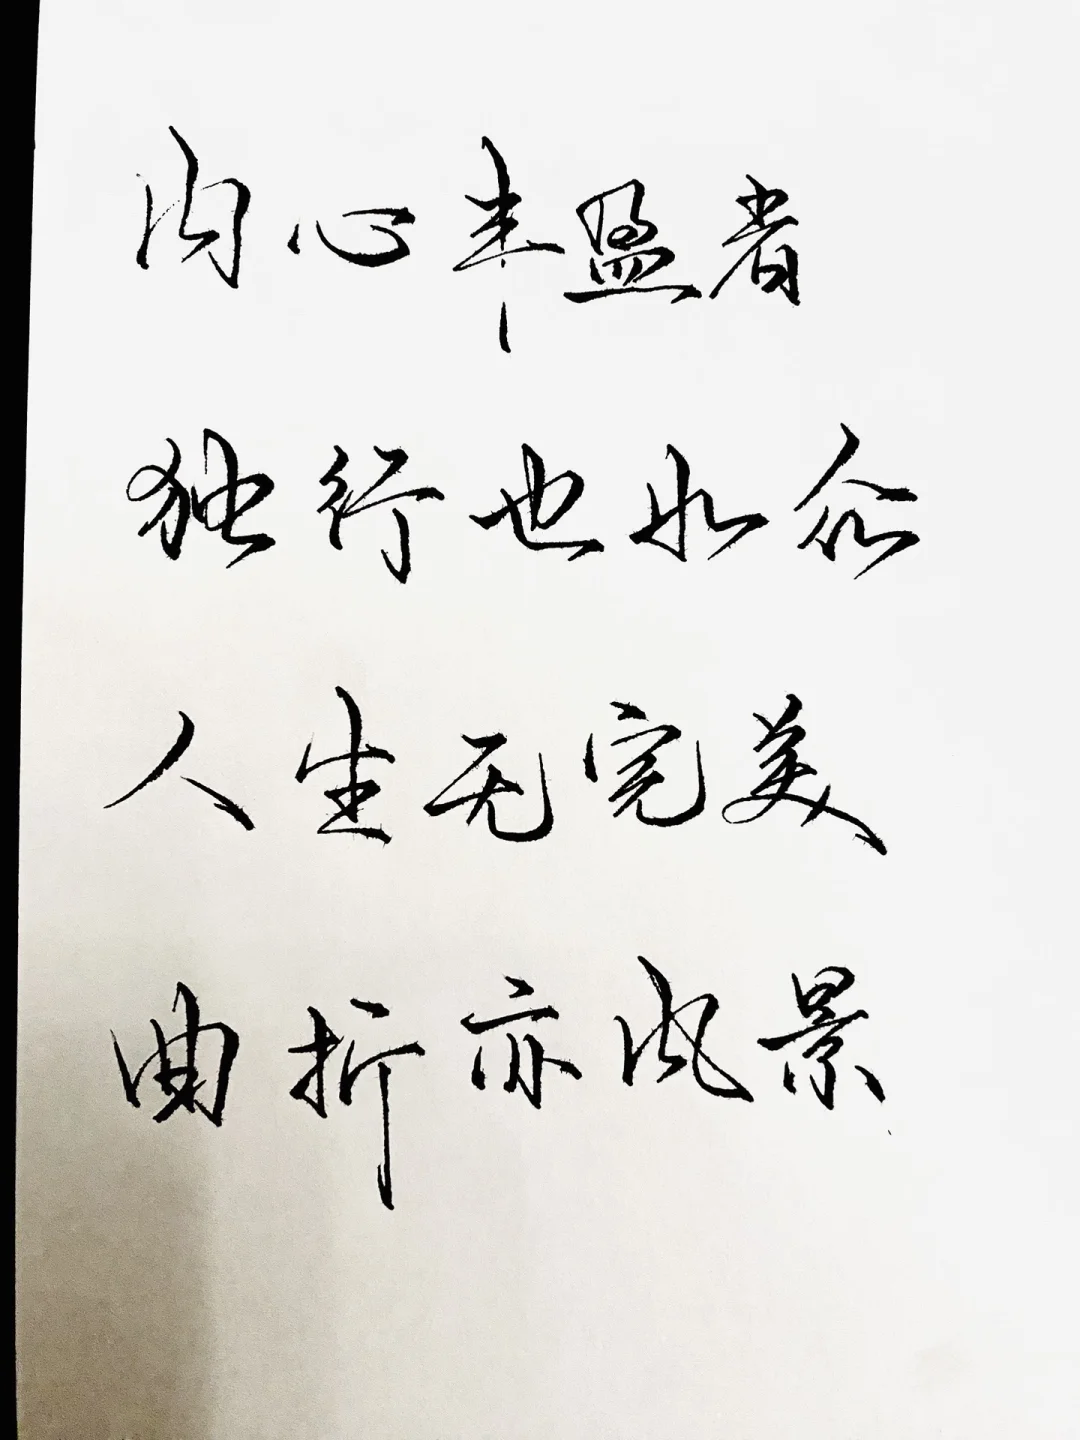 内心丰盈者
独行也如众
人生无完美
曲折亦风景